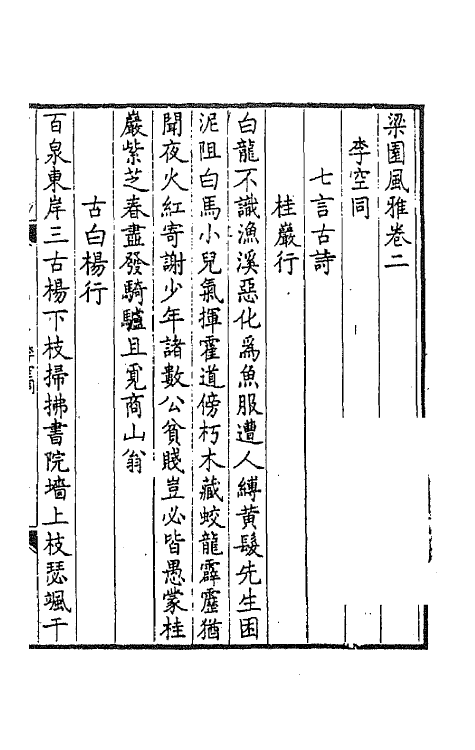 梁園風雅卷二
李空同
七言古詩
桂巖行
白龍不識漁溪惡化爲魚服遭人縛黄髮先生困
泥阻白馬小兒氣揮霍道傍朽木藏蛟龍霹靂猶
聞夜火紅寄謝少年諸數公貧賤豈必皆愚蒙桂
巖紫芝春盡發騎驢且覓商山翁
古白楊行
百泉東岸三古楊下枝掃拂書院墻上枝瑟颯干